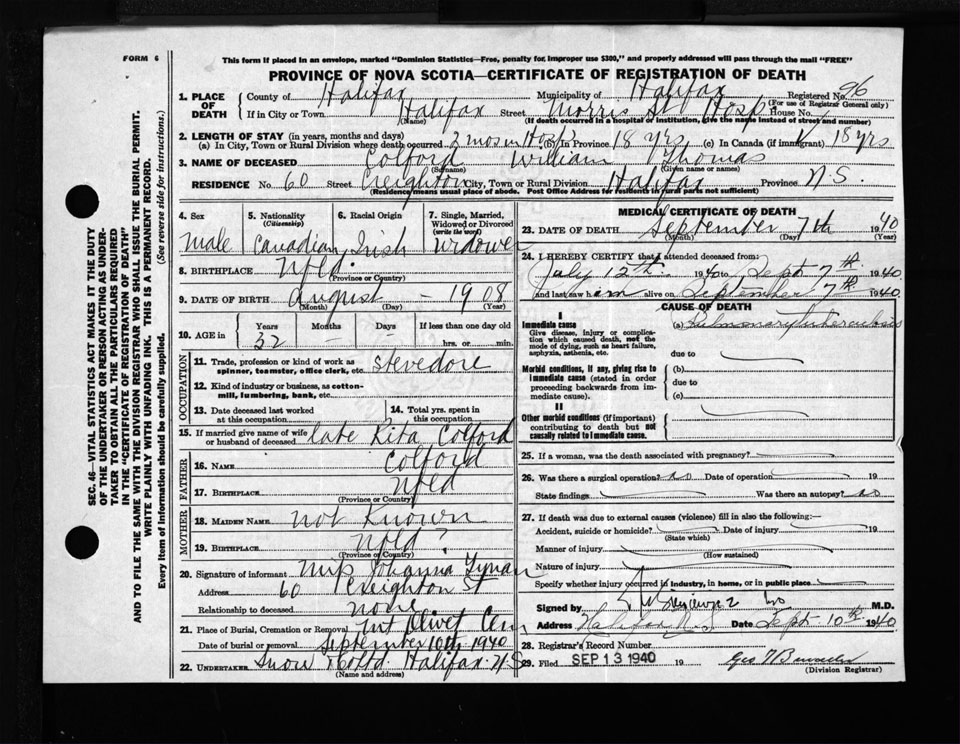 FORM 6
This form if placed in an envelope, marked "Dominion Statistics—Free, penalty for improper use $300," and properly addressed will pass through the mail "FREE"
PROVINCE OF NOVA SCOTIA—CERTIFICATE OF REGISTRATION OF DEATH
1. PLACE OF DEATH
County of Halifax Municipality of Halifax Registered No. 96
(For use of Registrar General only)
If in City or Town Halifax Street Morris St. Hosp. House No.
(Name) (If death occurred in a hospital of institution, give the name instead of street and number)
2. LENGTH OF STAY (in years, months and days)
(a) In City, Town or Rural Division where death occurred 2 mos in Hosp (b) In Province 18 yrs (c) In Canada (if immigrant) 18 yrs
3. NAME OF DECEASED Colford William Thomas
(Surname) (Given name or names)
RESIDENCE No. 60 Street Creighton City, Town or Rural Division Halifax Province N.S.
(Residence means usual place of abode. Post Office Address for Residents in rural parts not sufficient)
4. Sex Male
5. Nationality (Citizenship) Canadian
6. Racial Origin Irish
7. Single, Married, Widowed or Divorced (write the word) Widower
8. BIRTHPLACE Nfld.
(Province or Country)
9. DATE OF BIRTH August – 1908
(Month) (Day) (Year)
10. AGE in Years 32 Months – Days If less than one day old hrs. or min.
OCCUPATION
11. Trade, profession or kind of work as spinner, teamster, office clerk, etc. Stevedore
12. Kind of industry or business, as cotton-mill, lumbering, bank, etc.
13. Date deceased last worked at this occupation
14. Total yrs. spent in this occupation
15. If married give name of wife or husband of deceased late Rita Colford
FATHER
16. NAME Colford
17. BIRTHPLACE Nfld
(Province or Country)
MOTHER
18. MAIDEN NAME not Known
19. BIRTHPLACE Nfld ?
(Province or Country)
20. Signature of informant Mrs Johanna
Address 60 Creighton St
Relationship to deceased none
21. Place of Burial, Cremation or Removal Mt Olivet Cem
Date of burial or removal September 10th 1940
22. UNDERTAKER Snow & Co Ltd. Halifax. N.S
(Name and address)
MEDICAL CERTIFICATE OF DEATH
23. DATE OF DEATH September 7th 1940
(Month) (Day) (Year)
24. I HEREBY CERTIFY that I attended deceased from:
July 12th 1940 to Sept 7th 1940
and last saw him alive on September 7th 1940
CAUSE OF DEATH
I
Immediate cause
Give disease, injury or complication which caused death, not the mode of dying, such as heart failure, asphyxia, asthenia, etc.
(a) Pulmonary tuberculosis
due to
Morbid conditions, if any, giving rise to immediate cause (stated in order proceeding backwards from immediate cause).
(b)
due to
(c)
II
Other morbid conditions (if important) contributing to death but not causally related to immediate cause.
25. If a woman, was the death associated with pregnancy?
26. Was there a surgical operation? no Date of operation 19
State findings Was there an autopsy? no
27. If death was due to external causes (violence) fill in also the following:—
Accident, suicide or homicide? Date of injury 19
(State which)
Manner of injury
(How sustained)
Nature of injury
Specify whether injury occurred in industry, in home, or in public place
Signed by M.D.
Address Halifax N.S. Date Sept 10th 1940
28. Registrar's Record Number
29. Filed SEP 13 1940 19
(Division Registrar)
SEC. 46—VITAL STATISTICS ACT MAKES IT THE DUTY
OF THE UNDERTAKER OR PERSON ACTING AS UNDER-
TAKER TO OBTAIN ALL THE PARTICULARS REQUIRED
IN THE "CERTIFICATE OF REGISTRATION OF DEATH"
AND TO FILE THE SAME WITH THE DIVISION REGISTRAR WHO SHALL ISSUE THE BURIAL PERMIT.
WRITE PLAINLY WITH UNFADING INK. THIS IS A PERMANENT RECORD.
Every item of information should be carefully supplied. (See reverse side for instructions.)